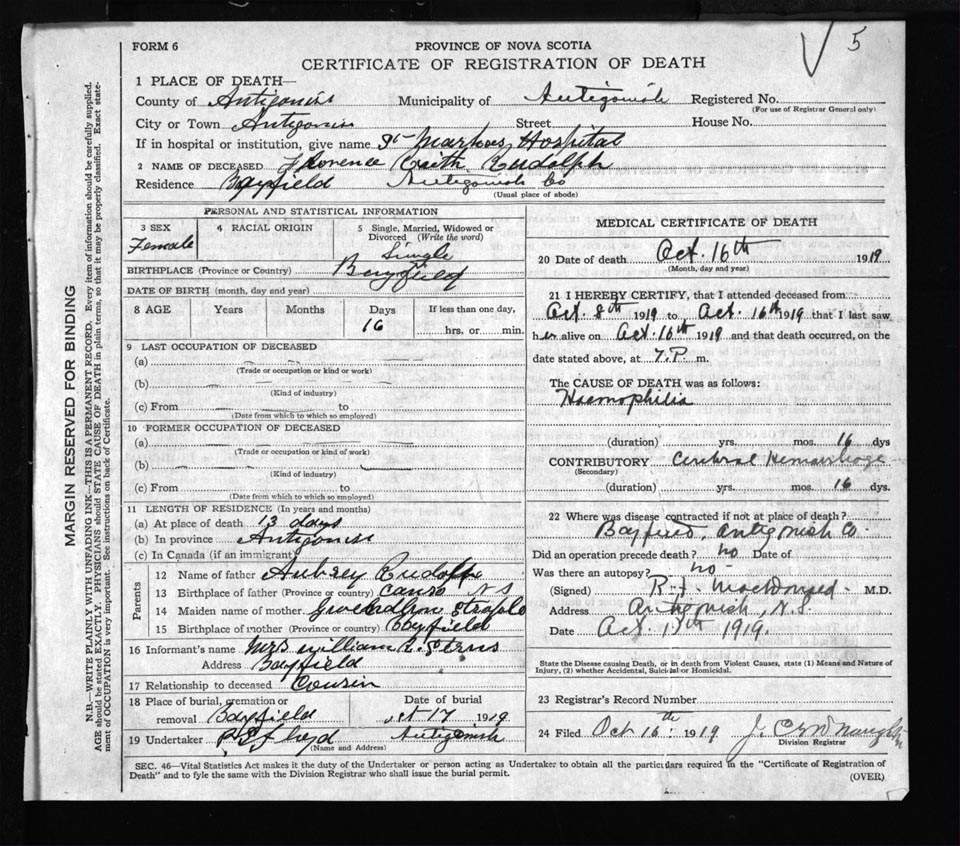 5
FORM 6
PROVINCE OF NOVA SCOTIA
CERTIFICATE OF REGISTRATION OF DEATH
1 PLACE OF DEATH—
County of Antigonish Municipality of Antigonish Registered No.
(For use of Registrar General only)
City or Town Antigonish Street House No.
If in hospital or institution, give name St Marthas Hospital
2 NAME OF DECEASED Florence Rudolph
Residence Bayfield Antigonish Co
(Usual place of abode)
PERSONAL AND STATISTICAL INFORMATION
3 SEX 4 RACIAL ORIGIN 5 Single, Married, Widowed or Divorced (Write the word)
Female Single
BIRTHPLACE (Province or Country) Bayfield
DATE OF BIRTH (month, day and year)
8 AGE Years Months Days If less than one day,
16 hrs. or min.
9 LAST OCCUPATION OF DECEASED
(a)
(Trade or occupation or kind or work)
(b)
(Kind of industry)
(c) From to
(Date from which to which so employed)
10 FORMER OCCUPATION OF DECEASED
(a)
(Trade or occupation or kind of work)
(b)
(Kind of industry)
(c) From to
(Date from which to which so employed)
11 LENGTH OF RESIDENCE (In years and months)
(a) At place of death 13 days
(b) In province Antigonish
(c) In Canada (if an immigrant)
Parents
12 Name of father Aubrey Rudolph
13 Birthplace of father (Province or country) Canso N S
14 Maiden name of mother
15 Birthplace of mother (Province or country) Bayfield
16 Informant's name Mrs William
Address Bayfield
17 Relationship to deceased Cousin
18 Place of burial, cremation or Date of burial
removal Bayfield Oct 17 1919
19 Undertaker Antigonish
(Name and Address)
MEDICAL CERTIFICATE OF DEATH
20 Date of death Oct. 16th 1919
(Month, day and year)
21 I HEREBY CERTIFY, that I attended deceased from
Oct. 8th 1919 to Oct. 16th 1919 that I last saw
her alive on Oct. 16th 1919 and that death occurred, on the
date stated above, at 7.P. m.
The CAUSE OF DEATH was as follows:
Haemophilia
(duration) yrs. mos. 16 dys
CONTRIBUTORY Hemorrhage
(Secondary)
(duration) yrs. mos. 16 dys.
22 Where was disease contracted if not at place of death?
Bayfield, Antigonish Co.
Did an operation precede death? no Date of
Was there an autopsy? no
(Signed) MacDonald M.D.
Address Antigonish, N.S.
Date Oct. 1919.
State the Disease causing Death, or in death from Violent Causes, state (1) Means and Nature of
Injury, (2) whether Accidental, Suicidal or Homicidal.
23 Registrar's Record Number
24 Filed Oct 16th 1919
Division Registrar
SEC. 46—Vital Statistics Act makes it the duty of the Undertaker or person acting as Undertaker to obtain all the particulars required in the "Certificate of Registration of
Death" and to fyle the same with the Division Registrar who shall issue the burial permit.
(OVER)
MARGIN RESERVED FOR BINDING
N.B.—WRITE PLAINLY WITH UNFADING INK—THIS IS A PERMANENT RECORD. Every item of information should be carefully supplied.
AGE should be stated EXACTLY. PHYSICIANS should STATE CAUSE OF DEATH in plain terms, so that it may be properly classified. Exact state-
ment of OCCUPATION is very important. See instructions on back of Certificate.